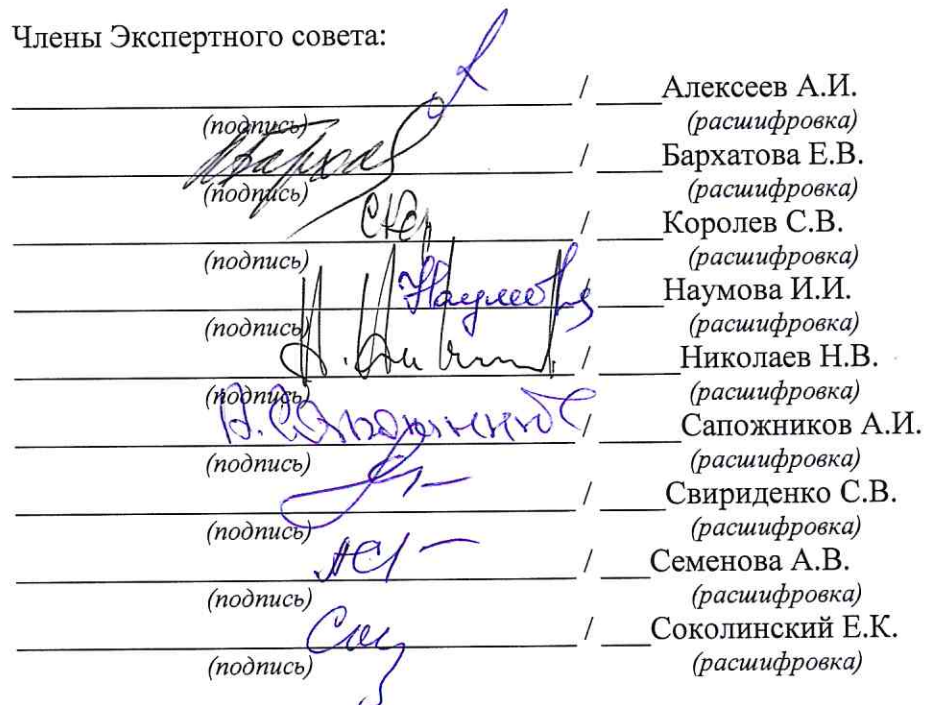 Члены Экспертного совета:
/ ___Алексеев А.И.
(подпись) (расшифровка)
/ ___Бархатова Е.В.
(подпись) (расшифровка)
/ ___Королев С.В.
(подпись) (расшифровка)
Наумов
/ ___Наумова И.И.
(подпись) (расшифровка)
/ ___Николаев Н.В.
(подпись) (расшифровка)
А. Сапожников
/ ___Сапожников А.И.
(подпись) (расшифровка)
/ ___Свириденко С.В.
(подпись) (расшифровка)
/ ___Семенова А.В.
(подпись) (расшифровка)
/ ___Соколинский Е.К.
(подпись) (расшифровка)